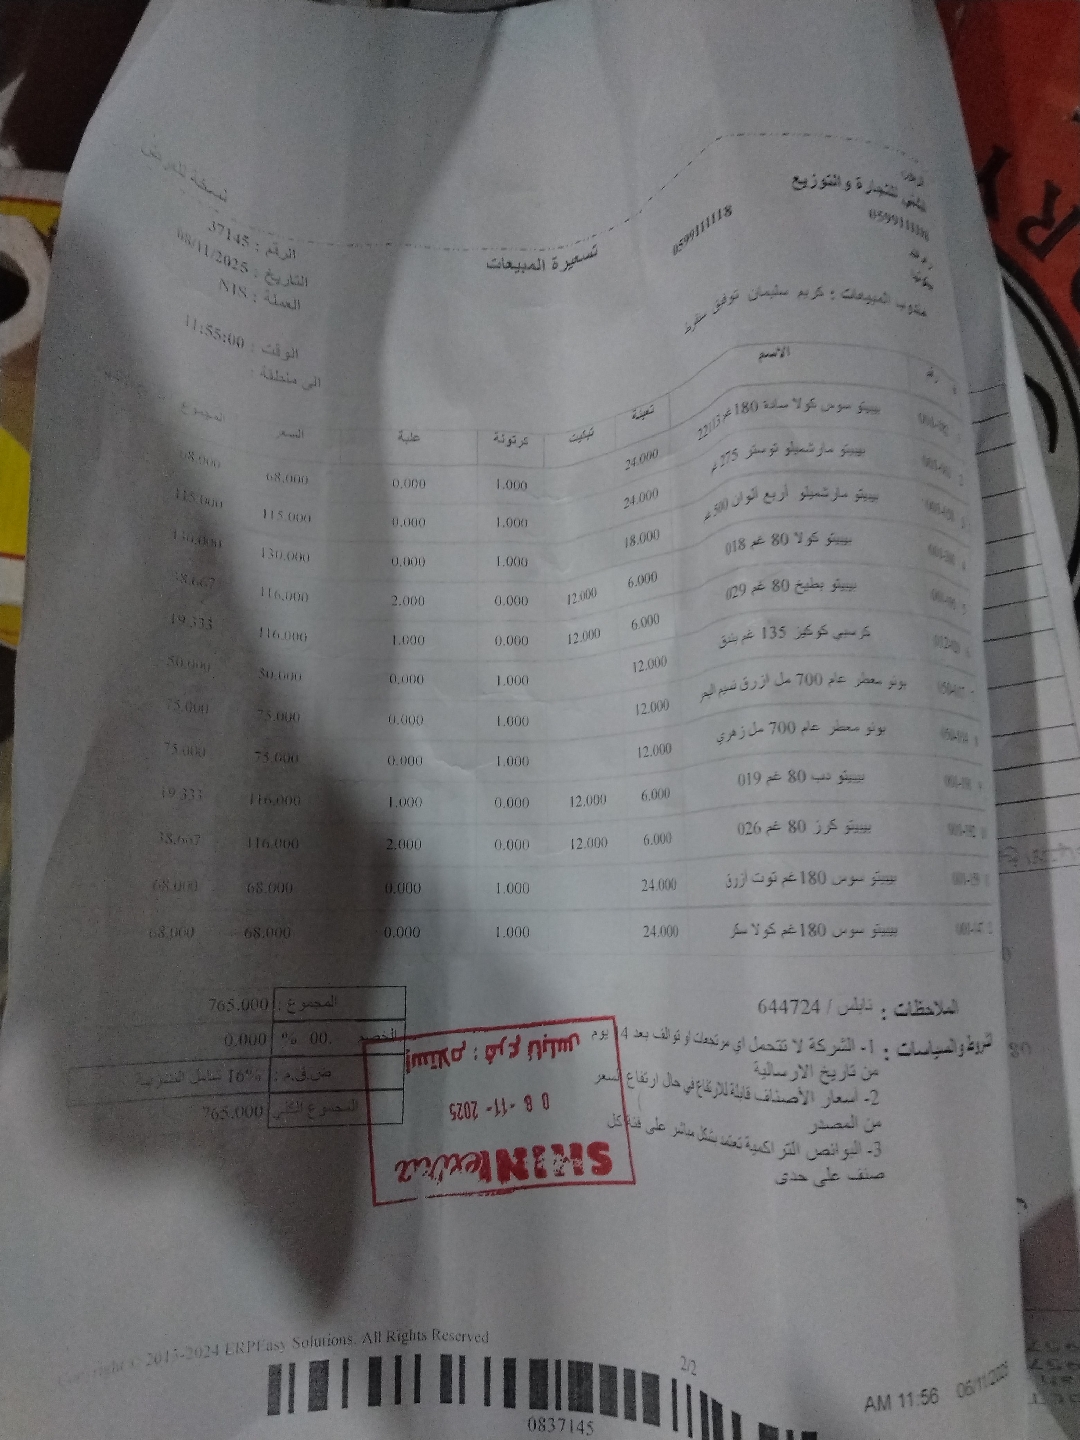 للتجارة والتوزيع
0599111118
0599111118
تسعيرة المبيعات
نسخة للعرض
الرقم : 37145
التاريخ : 08/11/2025
العملة : NIS
الوقت : 11:55:00
الى منطقة :
مندوب المبيعات : كريم سليمان توفيق
رقم الاسم تعبئة كرتونة علبة السعر المجموع
بيبيتو سوس كولا سادة 180 غم 24.000 1.000 0.000 68.000 68.000
بيبيتو مارشميلو توستر 275 غ 24.000 1.000 0.000 115.000 115.000
بيبيتو مارشميلو أربع ألوان 500 غم 18.000 1.000 0.000 130.000 130.000
بيبيتو كولا 80 غم 018 6.000 12.000 0.000 2.000 116.000 38.667
بيبيتو بطيخ 80 غم 029 6.000 12.000 0.000 1.000 116.000 19.333
كوكيز 135 غم بندق 12.000 1.000 0.000 50.000 50.000
بونو معطر عام 700 مل ازرق نسيم البحر 12.000 1.000 0.000 75.000 75.000
بونو معطر عام 700 مل زهري 12.000 1.000 0.000 75.000 75.000
بيبيتو دب 80 غم 019 6.000 12.000 0.000 1.000 116.000 19.333
بيبيتو كرز 80 غم 026 6.000 12.000 0.000 2.000 116.000 38.667
بيبيتو سوس 180 غم توت أزرق 24.000 1.000 0.000 68.000 68.000
بيبيتو سوس 180 غم كولا سكر 24.000 1.000 0.000 68.000 68.000
الملاحظات : نابلس / 644724
الشروط والسياسات : 1- الشركة لا تتحمل اي مرتجعات او توالف بعد 14 يوم
من تاريخ الارسالية
2- أسعار الأصناف قابلة للارتفاع في حال ارتفاع السعر
من المصدر
3- البوانص التراكمية تعتمد بشكل مباشر على فئة كل
صنف على حدى
المجموع : 765.000
الخصم .00 % 0.000
ض.ق.م : 16% شامل الضريبة
المجموع الكلي 765.000
إستلام : فرع نابلس
08-11-2025
SKINlexia
Copyright © 2015-2024 ERPEasy Solutions. All Rights Reserved
2/2
0837145
AM 11:56